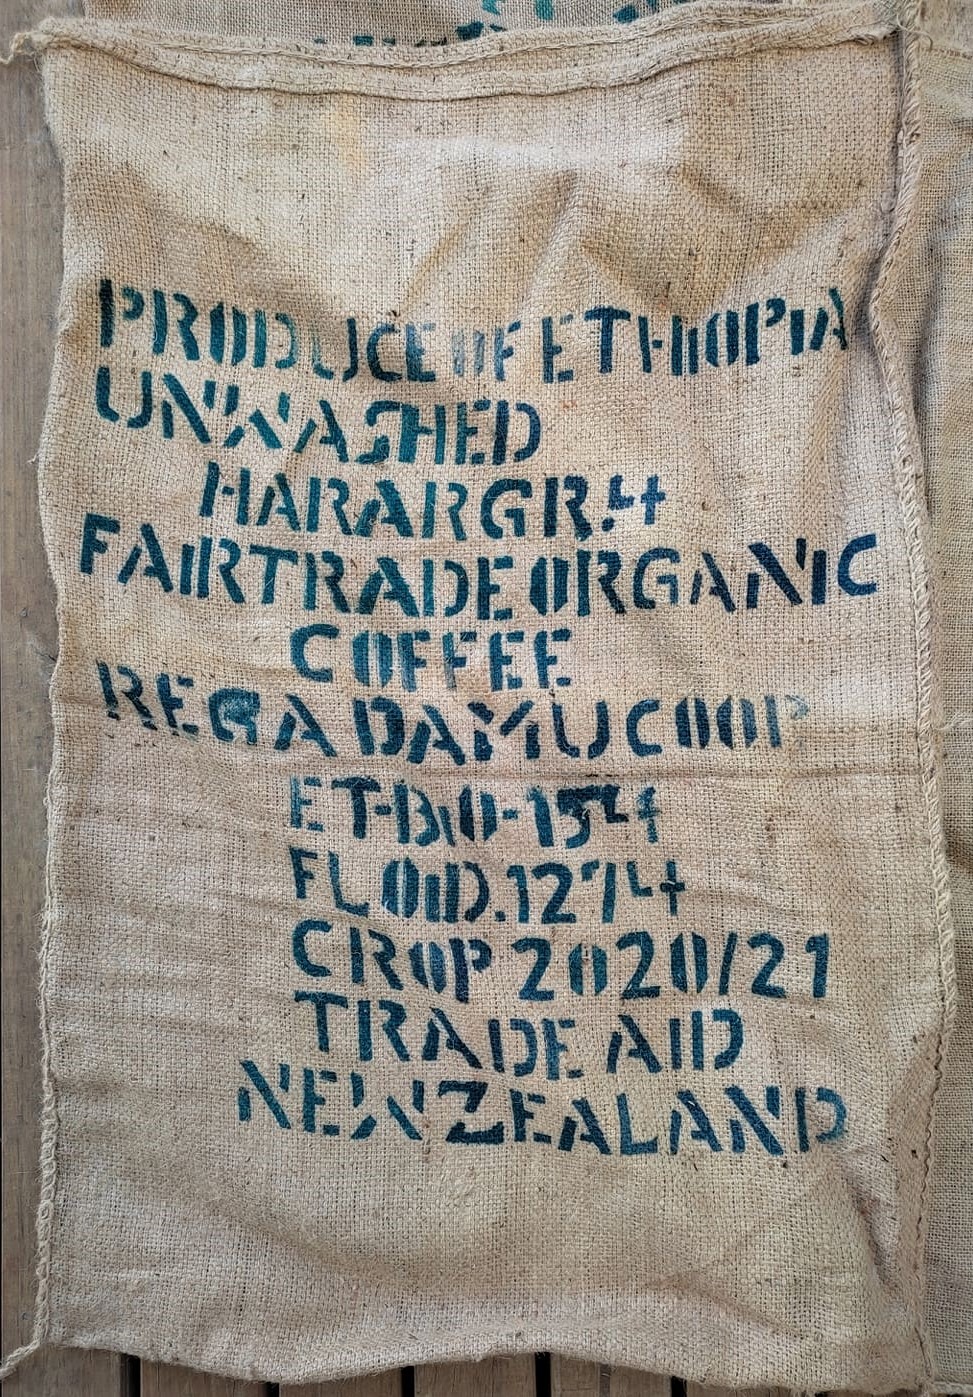 PRODUCE OF ETHIOPIA
UNWASHED
HARAR GR.4
FAIRTRADE ORGANIC
COFFEE
REGA DAMU COOP
ET-BIO-154
FLOID.1274
CROP 2020/21
TRADE AID
NEW ZEALAND